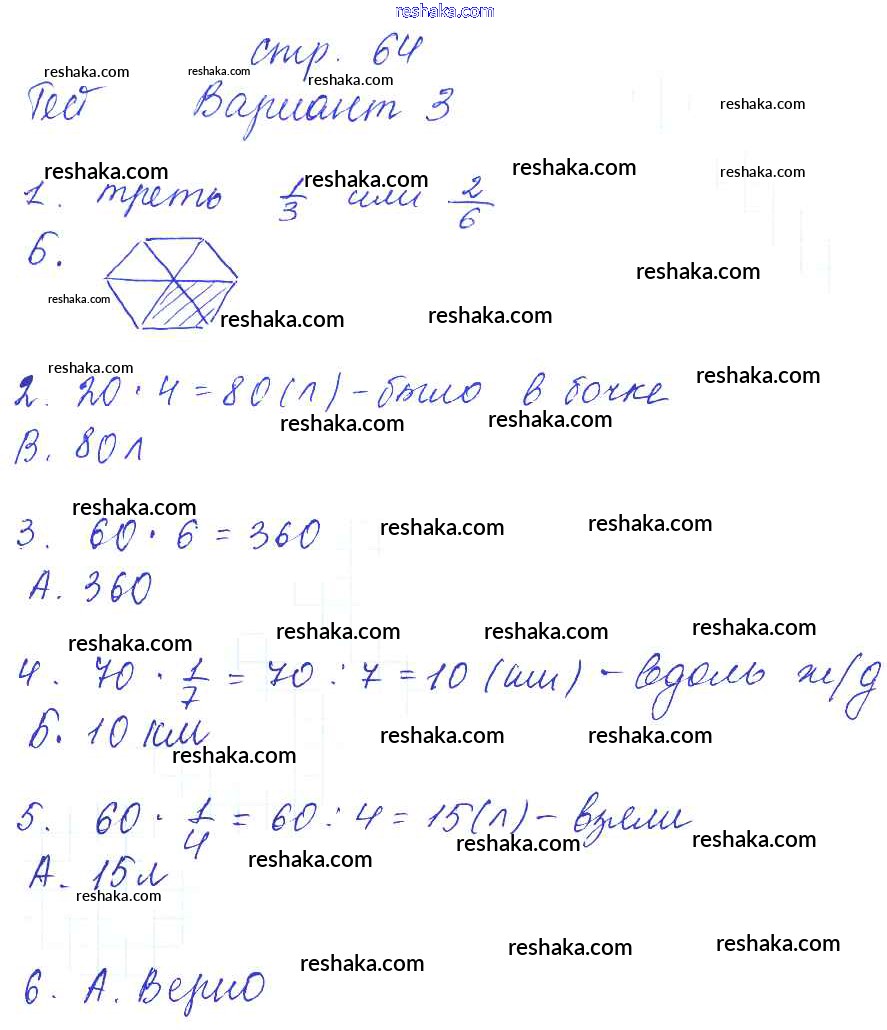 reshaka.com
стр. 64
reshaka.com reshaka.com reshaka.com
Тест Вариант 3 reshaka.com
reshaka.com reshaka.com reshaka.com reshaka.com
1. треть 1/3 или 2/6
Б.
reshaka.com
reshaka.com reshaka.com reshaka.com
reshaka.com reshaka.com
2. 20 · 4 = 80 (л) - было в бочке
reshaka.com reshaka.com
В. 80 л
reshaka.com reshaka.com reshaka.com
3. 60 · 6 = 360
А. 360
reshaka.com reshaka.com reshaka.com reshaka.com
4. 70 · 1/7 = 70 : 7 = 10 (км) - вдоль ж/д
Б. 10 км reshaka.com reshaka.com
reshaka.com
5. 60 · 1/4 = 60 : 4 = 15 (л) - взяли
reshaka.com reshaka.com reshaka.com
А. 15 л
reshaka.com
reshaka.com reshaka.com reshaka.com
6. А. Верно